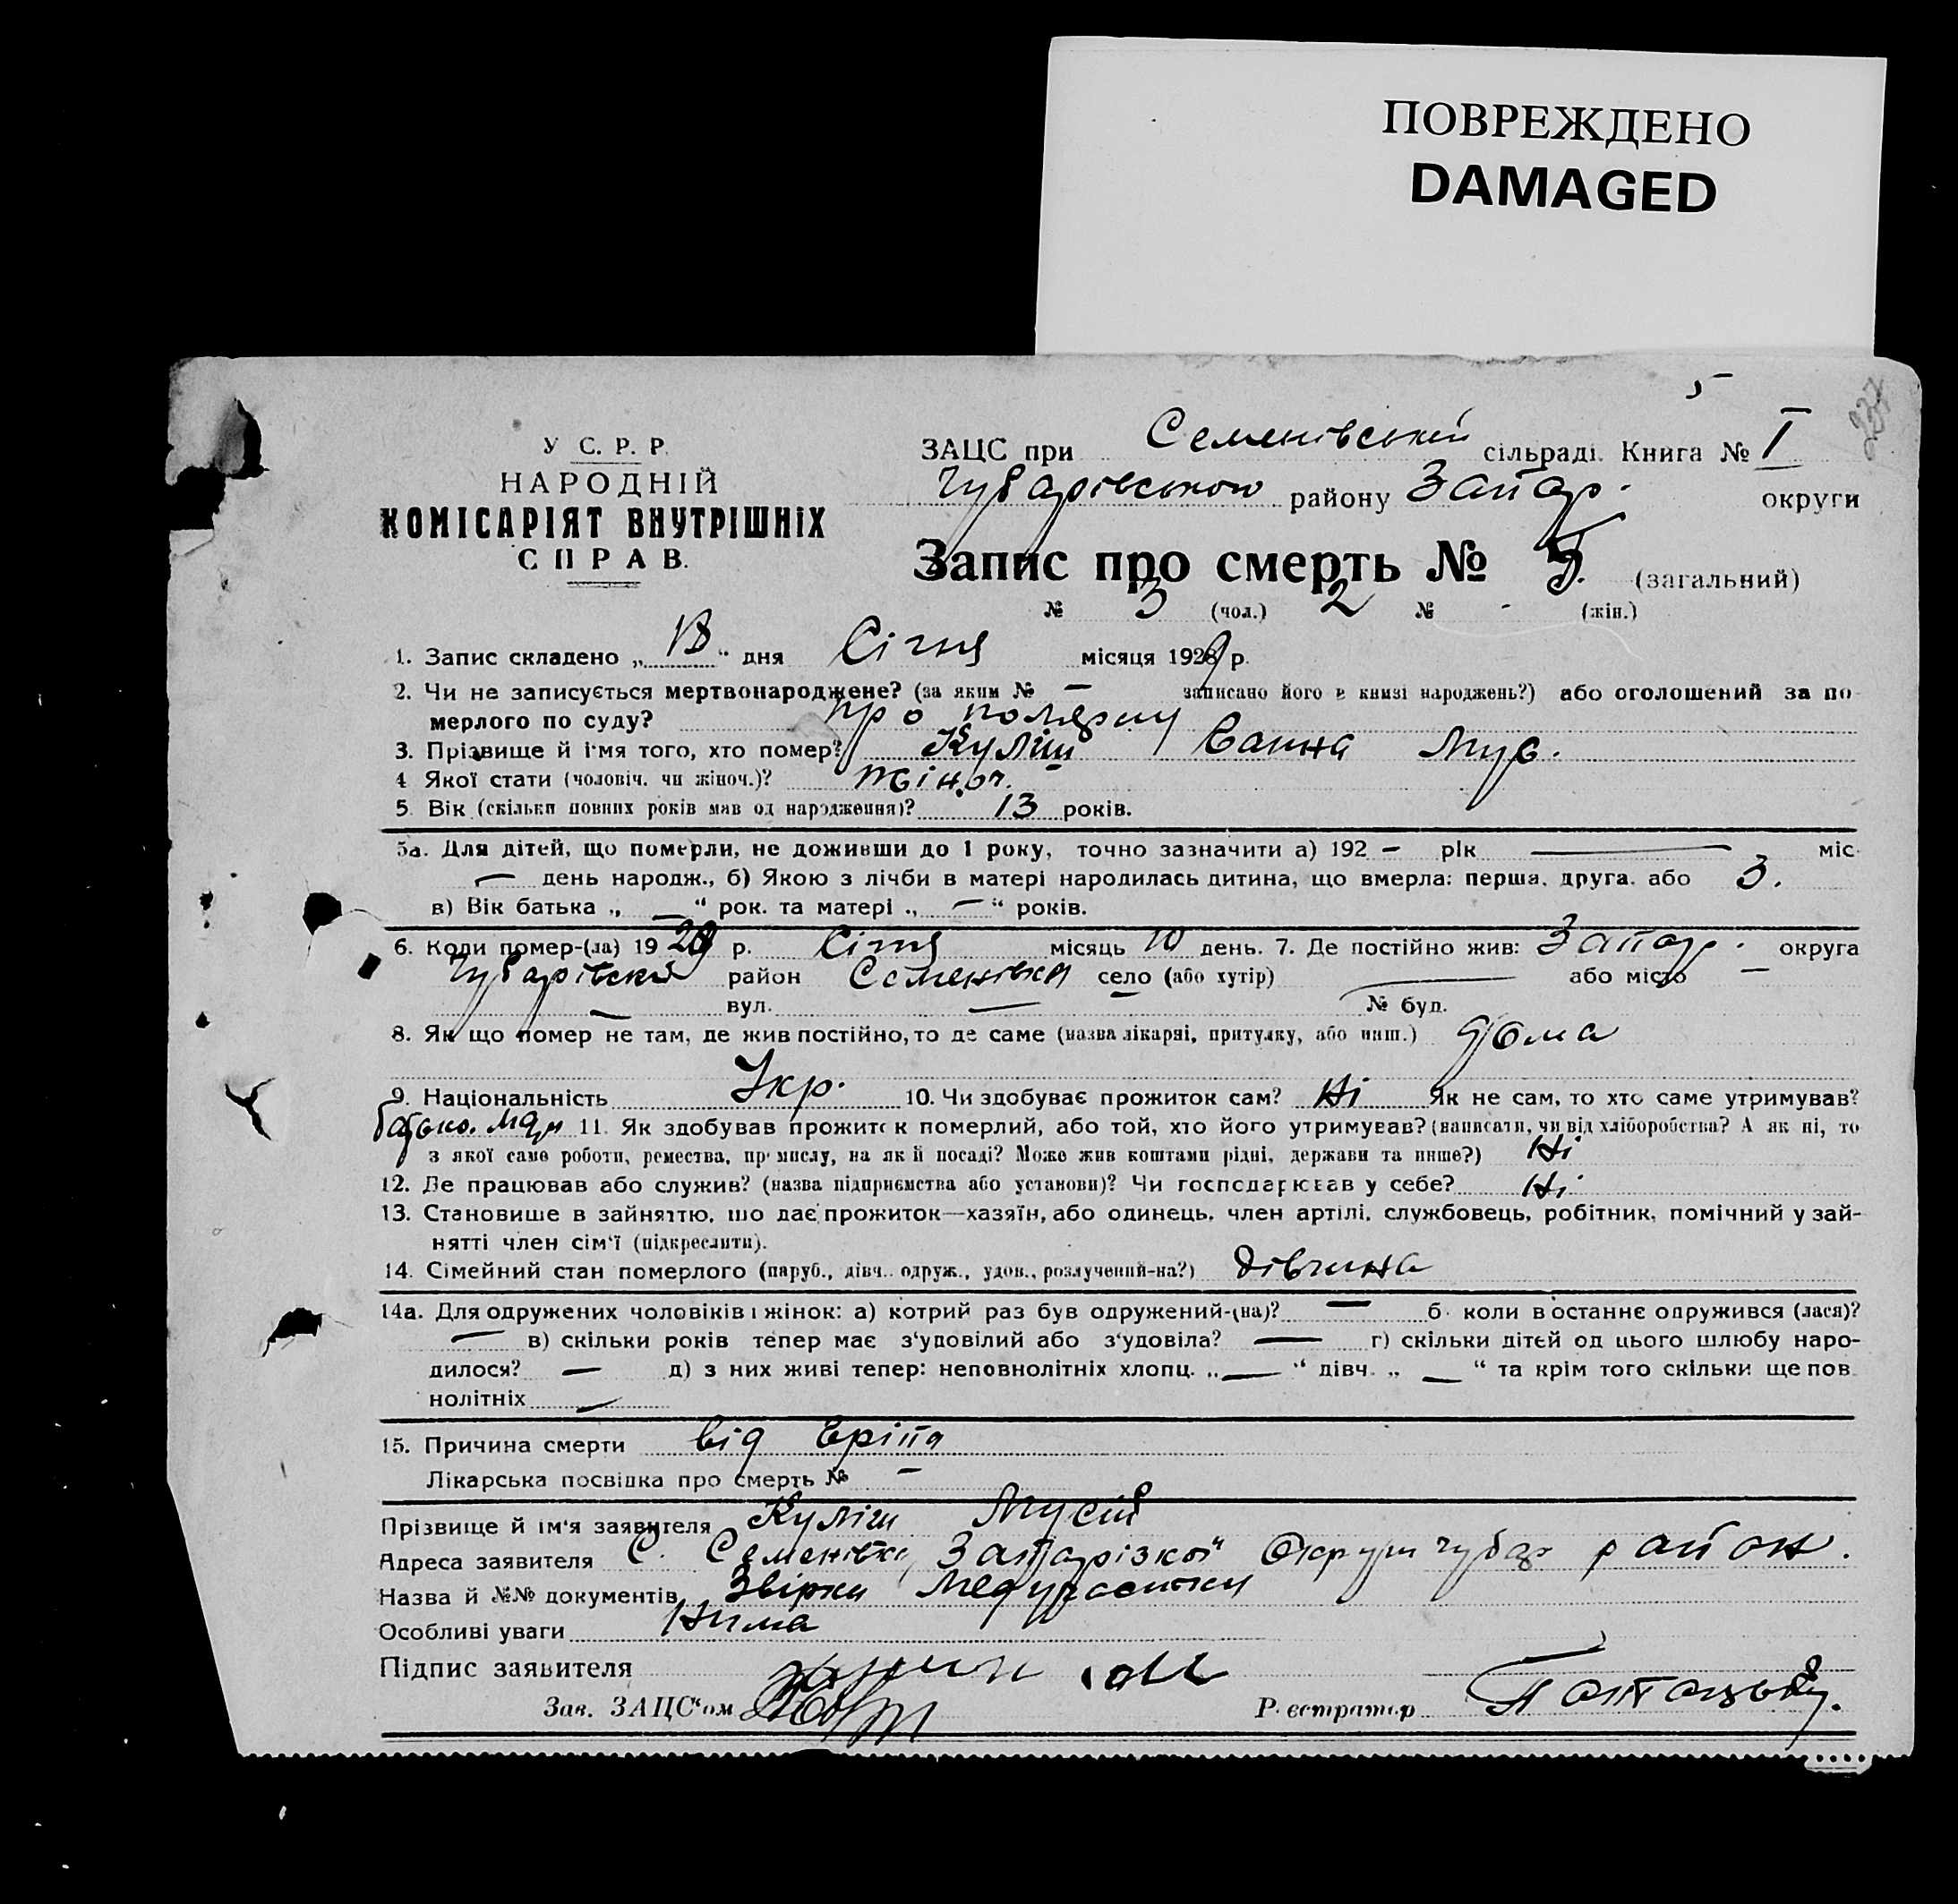 ПОВРЕЖДЕНО
DAMAGED
5
237
У С. Р. Р.
НАРОДНІЙ
КОМІСАРІЯТ ВНУТРІШНІХ
СПРАВ.
ЗАЦС при Семенівській сільраді. Книга № I
Чубарівського району Запор. округи
Запис про смерть № 5. (загальний)
№ 3 (чол.) 2 № - (жін.)
1. Запис складено „ 13 “ дня Січня місяця 1929 р.
2. Чи не записується мертвонароджене? (за яким № — записано його в книзі народжень?) або оголошений за по-
мерлого по суду? про
3. Прізвище й імя того, хто помер? Куліш Ганна Мус.
4 Якої стати (чоловіч. чи жіноч.)? жіноч.
5. Вік (скільки повних років мав од народження)? 13 років.
5а. Для дітей, що померли, не доживши до 1 року, точно зазначити а) 192 — рік — міс.
— день народж., б) Якою з лічби в матері народилась дитина, що вмерла: перша, друга, або 3.
в) Вік батька „ — “ рок. та матері „ — “ років.
6. Коли помер-(ла) 1929 р. Січня місяць 10 день. 7. Де постійно жив: Запор. округа
Чубарівський район Семенівка село (або хутір) — або місто —
— вул. — № буд.
8. Як що помер не там, де жив постійно, то де саме (назва лікарні, притулку, або инш.) дома
9. Національність Укр. 10. Чи здобуває прожиток сам? Ні Як не сам, то хто саме утримував?
батько. 11. Як здобував прожиток померлий, або той, хто його утримував? (написати, чи від хліборобства? А як ні, то
з якої саме роботи, ремества, промислу, на якій посаді? Може жив коштами рідні, держави та инше?) Ні
12. Де працював або служив? (назва підприємства або установи)? Чи господарював у себе? Ні
13. Становище в зайняттю, що дає прожиток—хазяїн, або одинець, член артілі, службовець, робітник, помічний у зай-
нятті член сім'ї (підкреслити).
14. Сімейний стан померлого (паруб., дівч., одруж., удов., розлучений-на?) дівчина
14а. Для одружених чоловіків і жінок: а) котрий раз був одружений-(на)? — б. коли востаннє одружився (лася)?
— в) скільки років тепер має з'удовілий або з'удовіла? — г) скільки дітей од цього шлюбу наро-
дилося? — д) з них живі тепер: неповнолітніх хлопц. „ — “ дівч. „ — “ та крім того скільки ще пов-
нолітніх —
15. Причина смерти від Гріпа
Лікарська посвідка про смерть № —
Прізвище й ім'я заявителя Куліш Мусій
Адреса заявителя С. Семенівка, Запорізкої Округи Чубар район.
Назва й №№ документів
Особливі уваги Нима
Підпис заявителя
Зав. ЗАЦС'ом Реєстратор